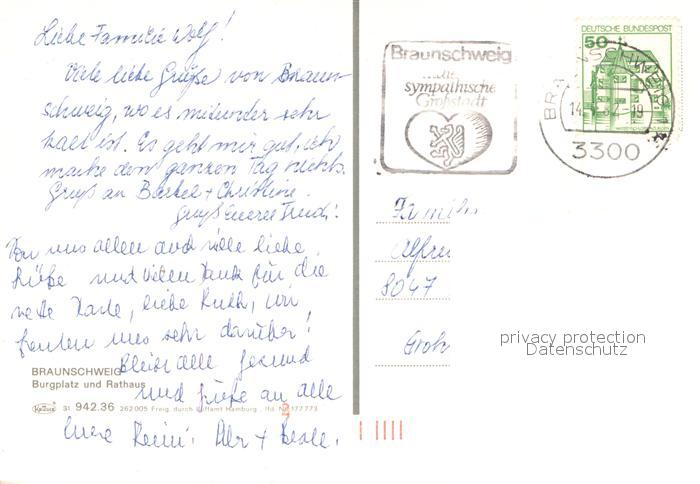 Liebe Familie Wolf!
Viele liebe Grüße von Braun-
schweig, wo es mitunter sehr
kalt ist. Es geht mir gut, ich
mache den ganzen Tag nichts.
Gruß an Bärbel + Christine.
Gruß Eure Trudi!
Von uns allen auch viele liebe
Grüße und vielen Dank für die
nette Karte, liebe Ruth, wir
freuten uns sehr darüber!
Bleibt alle gesund
und Grüße an alle
Eure
BRAUNSCHWEIG
Burgplatz und Rathaus
31 942.36 262005 Freig. durch Luftamt Hamburg, lfd. Nr. 177773
Braunschweig
sympathische
Großstadt
50 DEUTSCHE BUNDESPOST
BRAUNSCHWEIG
3300
Famili
Alfre
8047
Groh
privacy protection
Datenschutz